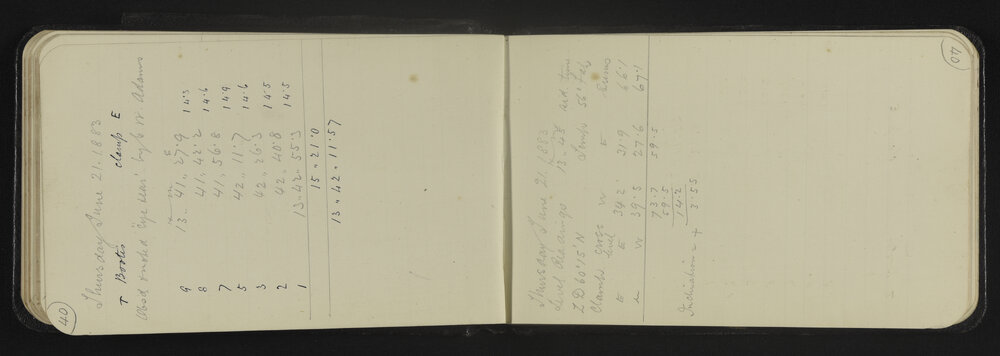 40
Thursday June 21. 1883
τ Bootis clamp E
Obsd ended "eye near" by Mr Adams
h m s
9 13 .. 41 .. 27.9 14.3
8 41 .. 42.2 14.6
7 41 .. 56.8 14.9
5 42 .. 11.7 14.6
3 42 .. 26.3 14.5
2 42 .. 40.8 14.5
1 13 .. 42 .. 55.3
15 .. 21.0
13 .. 42 .. 11.57
40
Thursday June 21. 1883
Level Readings 13.48 sid. time
Z D 60°15' N Temp 56° Fah
Clamp cross level W E Sums
E E 34.2 31.9 66.1
W W 39.5 27.6 67.1
73.7 59.5
59.5
14.2
Inclination = + 3.55